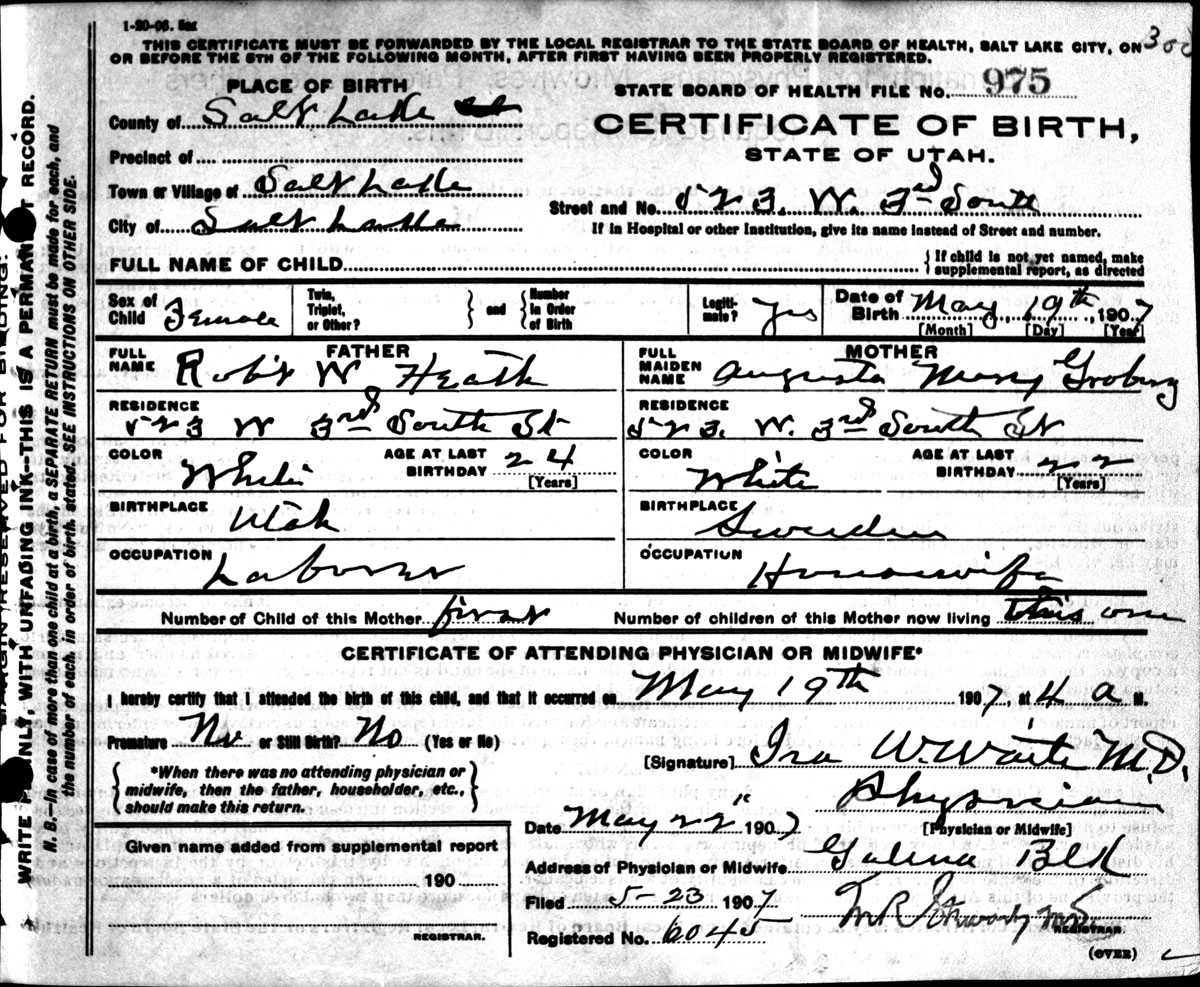 1-20-06.
300
THIS CERTIFICATE MUST BE FORWARDED BY THE LOCAL REGISTRAR TO THE STATE BOARD OF HEALTH, SALT LAKE CITY, ON
OR BEFORE THE 5TH OF THE FOLLOWING MONTH, AFTER FIRST HAVING BEEN PROPERLY REGISTERED.
PLACE OF BIRTH
County of Salt Lake
Precinct of
Town or Village of Salt Lake
City of Salt Lake
STATE BOARD OF HEALTH FILE No. 975
CERTIFICATE OF BIRTH,
STATE OF UTAH.
Street and No. 523. W. 3rd South
If in Hospital or other Institution, give its name instead of Street and number.
FULL NAME OF CHILD
{ If child is not yet named, make
supplemental report, as directed
Sex of Child Female
Twin, Triplet, or Other? } and { Number in Order of Birth
Legitimate? Yes
Date of Birth May 19th, 1907
[Month] [Day] [Year]
FATHER
FULL NAME Robt W Heath
RESIDENCE
523 W 3rd South St
COLOR White
AGE AT LAST BIRTHDAY 24
[Years]
BIRTHPLACE Utah
OCCUPATION Laborer
MOTHER
FULL MAIDEN NAME Augusta Mary Groberg
RESIDENCE
523. W. 3rd South St
COLOR White
AGE AT LAST BIRTHDAY 22
[Years]
BIRTHPLACE Sweden
OCCUPATION Housewife
Number of Child of this Mother first
Number of children of this Mother now living this one
CERTIFICATE OF ATTENDING PHYSICIAN OR MIDWIFE*
I hereby certify that I attended the birth of this child, and that it occurred on May 19th 1907, at 4 a M.
Premature No or Still Birth? No (Yes or No)
{ *When there was no attending physician or
midwife, then the father, householder, etc.,
should make this return. }
[Signature] Ira W. Waite M.D.
Physician
[Physician or Midwife]
Date May 22 1907
Address of Physician or Midwife Galena Blk
Filed 5-23 1907
Registered No. 6045
REGISTRAR
(OVER)
Given name added from supplemental report
190
REGISTRAR.
MARGIN RESERVED FOR BINDING.
WRITE ONLY WITH UNFADING INK—THIS IS A PERMANENT RECORD.
N. B.—In case of more than one child at a birth, a SEPARATE RETURN must be made for each, and
the number of each, in order of birth, stated. SEE INSTRUCTIONS ON OTHER SIDE.